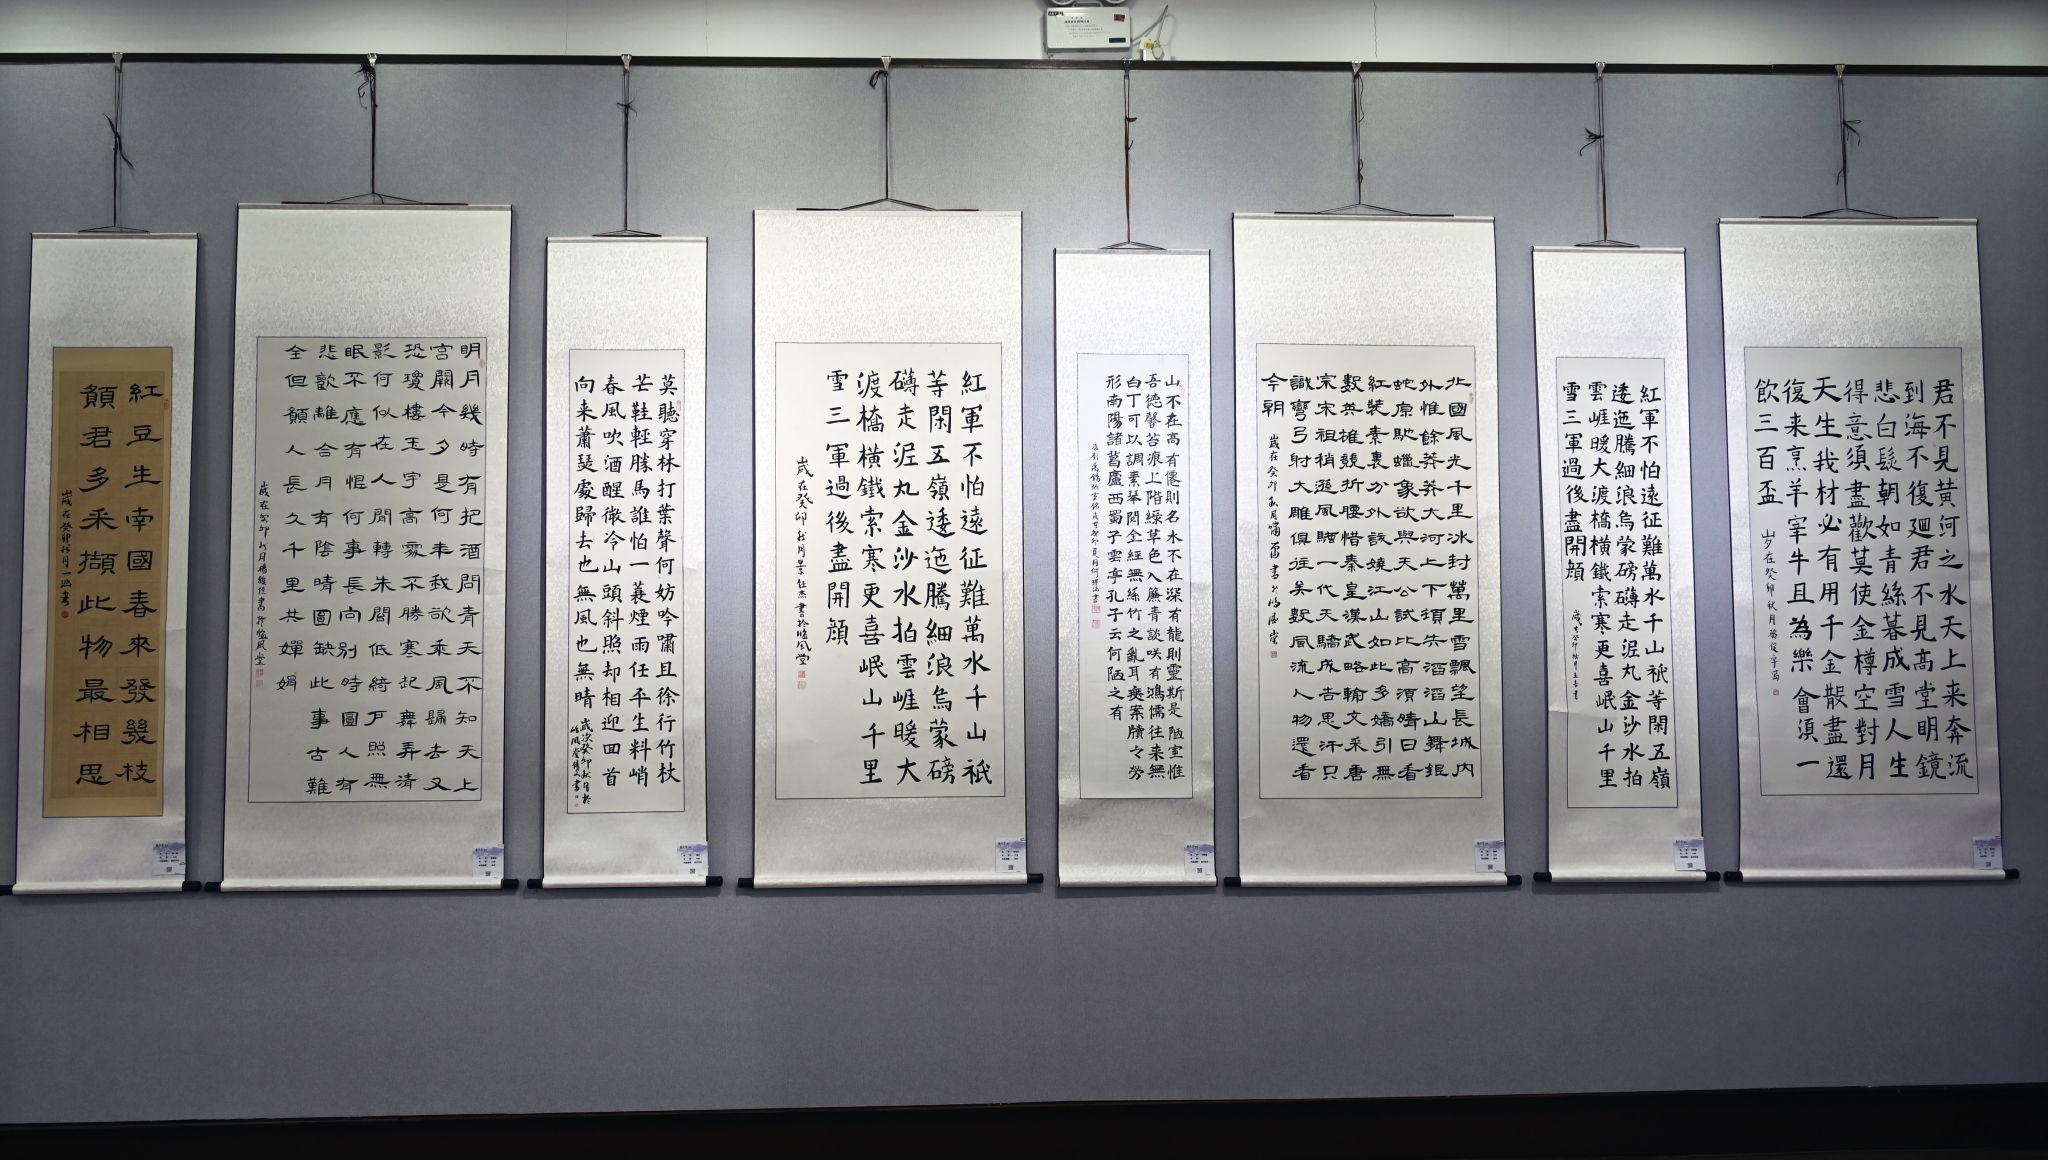 紅豆生南國春來發幾枝
願君多采擷此物最相思
歲在癸卯秋月一鴻書
明月幾時有把酒問青天不知天上
宮闕今夕是何年我欲乘風歸去又
恐瓊樓玉宇高處不勝寒起舞弄清
影何似在人間轉朱閣低綺戶照無
眠不應有恨何事長向別時圓人有
悲歡離合月有陰晴圓缺此事古難
全但願人長久千里共嬋娟
歲在癸卯秋月書於臨風堂
莫聽穿林打葉聲何妨吟嘯且徐行竹杖
芒鞋輕勝馬誰怕一蓑煙雨任平生料峭
春風吹酒醒微冷山頭斜照却相迎回首
向来蕭瑟處歸去也無風也無晴
歲次癸卯秋月於
紅軍不怕遠征難萬水千山祇
等閑五嶺逶迤騰細浪烏蒙磅
礴走泥丸金沙水拍雲崖暖大
渡橋橫鐵索寒更喜岷山千里
雪三軍過後盡開顔
歲在癸卯秋月書於臨風堂
山不在高有僊則名水不在深有龍則靈斯是陋室惟
吾德馨苔痕上階綠草色入簾青談咲有鴻儒往来無
白丁可以調素琴閱金經無絲竹之亂耳無案牘之勞
形南陽諸葛廬西蜀子雲亭孔子云何陋之有
北國風光千里冰封萬里雪飄望長城內
外惟餘莽莽大河上下頓失滔滔山舞銀
蛇原馳蠟象欲與天公試比高須晴日看
紅裝素裹分外妖嬈江山如此多嬌引無
數英雄競折腰惜秦皇漢武略輸文采唐
宗宋祖稍遜風騷一代天驕成吉思汗只
識彎弓射大雕俱往矣數風流人物還看
今朝
歲在癸卯秋月
紅軍不怕遠征難萬水千山祇等閑五嶺
逶迤騰細浪烏蒙磅礴走泥丸金沙水拍
雲崖暖大渡橋橫鐵索寒更喜岷山千里
雪三軍過後盡開顔
君不見黃河之水天上来奔流
到海不復迴君不見高堂明鏡
悲白髮朝如青絲暮成雪人生
得意須盡歡莫使金樽空對月
天生我材必有用千金散盡還
復来烹羊宰牛且為樂會須一
飲三百盃
岁在癸卯秋月